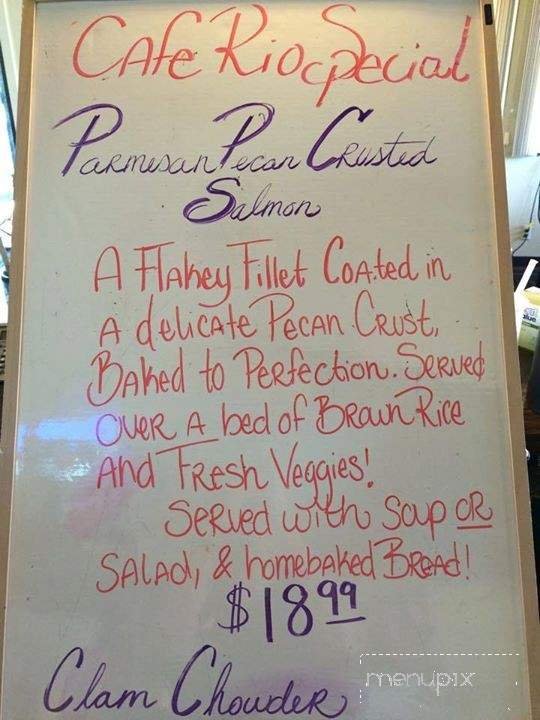 CAfe Rio Special
Parmesan Pecan Crusted
Salmon
A Flakey Fillet Coated in
A delicate Pecan Crust,
Baked to Perfection. Served
over A bed of Brown Rice
And Fresh Veggies!
Served with Soup OR
SALAd, & homebaked BReAd!
$18.99
Clam Chowder
menupix